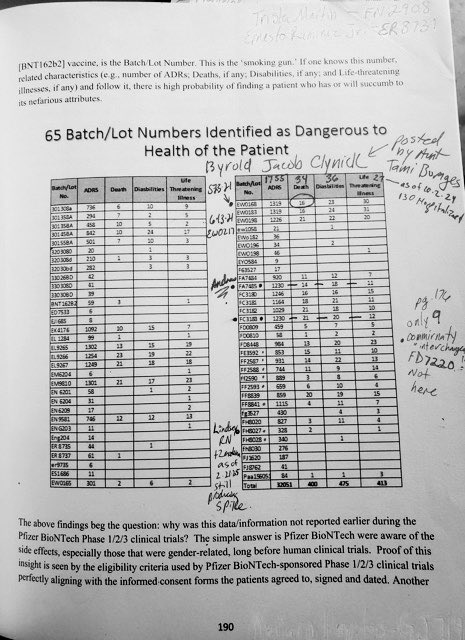 Trista Martin — FN 2908
ER8731
[BNT162b2] vaccine, is the Batch/Lot Number. This is the 'smoking gun.' If one knows this number,
related characteristics (e.g., number of ADRs; Deaths, if any; Disabilities, if any; and Life-threatening
illnesses, if any) and follow it, there is high probability of finding a patient who has or will succumb to
its nefarious attributes.
65 Batch/Lot Numbers Identified as Dangerous to
Health of the Patient
Byrold Jacob Clynick
Posted
by Aunt
Tami Burages
as of 10.2.24
130 Hospitalized
Batch/Lot No. ADRS Death Disabilities Life Threatening Illness
301308A 736 6 10 9
301358A 294 7 2 5
301458A 458 10 5 2
842 10 24 17
501 7 10 3
320308D 20 1
320308d 210 1 3 3
32030bd 282 3 3
330268D 42
330308D 41
330308D 39
BNT162B2 59 3 1
ED7533 6
EJ685 8
EK4176 1092 10 15 7
EL 1284 99 1 1
EL9265 1302 13 15 19
EL9266 1254 23 19 22
EL9267 1249 21 18 18
EM6204 6 1
EM9810 1301 21 17 23
EN 6201 58 1 2
EN 6204 31 1
EN6209 17 2
EN 9581 746 12 12 13
ENG203 11 1
Eng204 14
ER 8735 44 1
ER 8737 61 1
er9735 6
ES1686 11
EW0165 301 2 6 2
1755 34 36 27
Batch/Lot No. ADRS Death Disabilities Life Threatening Illness
EW0168 1319 16 23 30
EW0183 1319 16 24 31
EW0198 1226 21 22 20
ew1058 21 1
EWo182 36
EW0196 34 2
EW0198 46 1
EY0584 9
F63527 17
FA7484 920 11 12 7
FA7485 1230 14 18 11
FC3180 1246 16 16 15
FC3181 1164 18 21 11
FC3182 1029 21 18 10
FC3183 1230 21 20 12
FD0809 459 5 7 5
FD0810 58 1 2 2
FD8448 984 13 20 23
FF3592 853 15 11 10
FF2587 931 14 22 13
FF2588 744 11 9 14
ff2590 889 3 8 6
FF2593 659 6 10 4
FF8839 859 20 19 15
FF8841 1115 4 11 7
Fg3527 430 4 3
FH8020 827 3 11 4
FH8027 328 2 1
FH8028 340 1
FH8030 276
FJ1620 187
FJ8762 41
Paa156051 84 1 1 3
Total 32051 400 475 413
Andrew
Lindsey
RN
as of
2.21.25
still
produces
Spike.
pg. 176
only 9
comirnaty
interchanges
FD7220
Not
here
The above findings beg the question: why was this data/information not reported earlier during the
Pfizer BioNTech Phase 1/2/3 clinical trials? The simple answer is Pfizer BioNTech were aware of the
side effects, especially those that were gender-related, long before human clinical trials. Proof of this
insight is seen by the eligibility criteria used by Pfizer BioNTech-sponsored Phase 1/2/3 clinical trials
perfectly aligning with the informed-consent forms the patients agreed to, signed and dated. Another
190